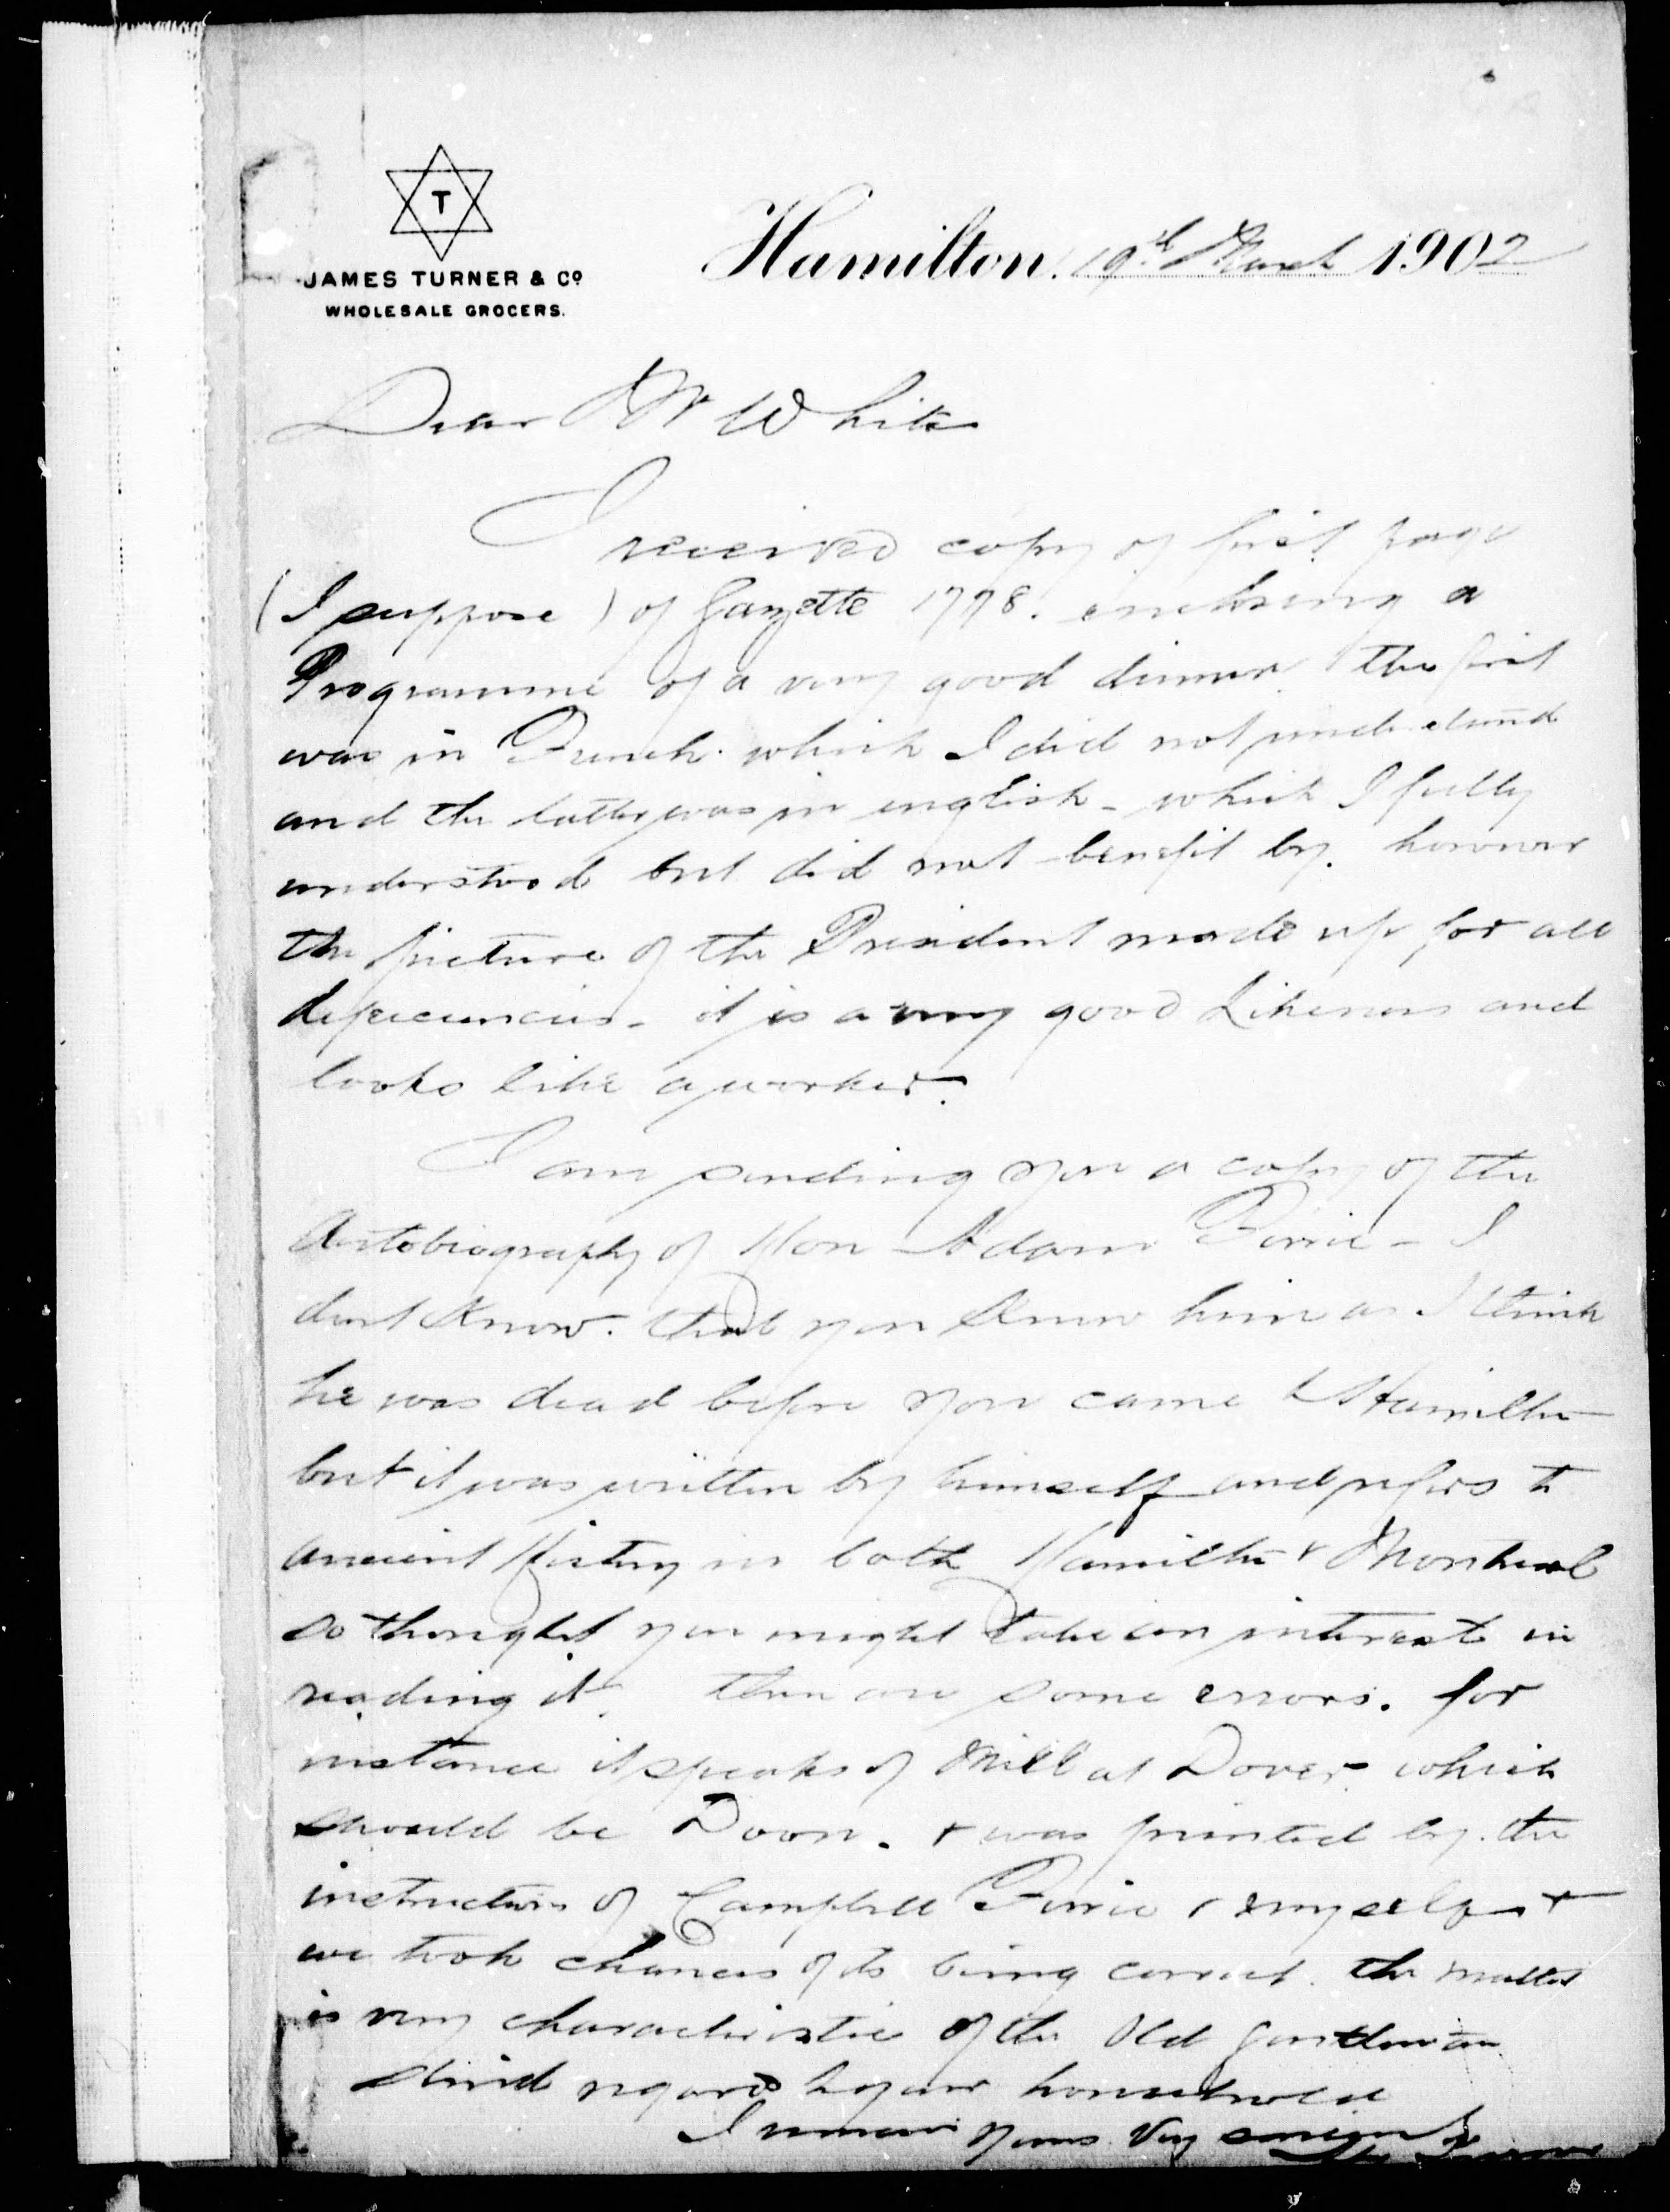 T
JAMES TURNER & Co
WHOLESALE GROCERS.
Hamilton. 19th March 1902
Dear Mr White
I received copy of first page
(I suppose) of Gazette 1778. inclosing a
Programme of a very good dinner. the first
was in French. which I did not understand
and the latter was in english - which I fully
understood but did not benefit by. however
the picture of the President made up for all
deficiencies - it is a very good Likeness and
looks like a worker.
I am sending you a copy of the
Autobiography of Hon Adam Ferrie - I
dont know. that you knew him as I think
he was dead before you came to Hamilton
but it was written by himself and refers to
ancient History in both Hamilton & Montreal
so thought you might take an interest in
reading it. there are some errors. for
instance it speaks of Mill at Dover which
should be Doon. & was printed by the
instructions of Campbell Ferrie & myself &
we took chances of its being correct. the matter
is very characteristic of the Old Gentleman
Kind regards to your household
I remain yours Very
Turner